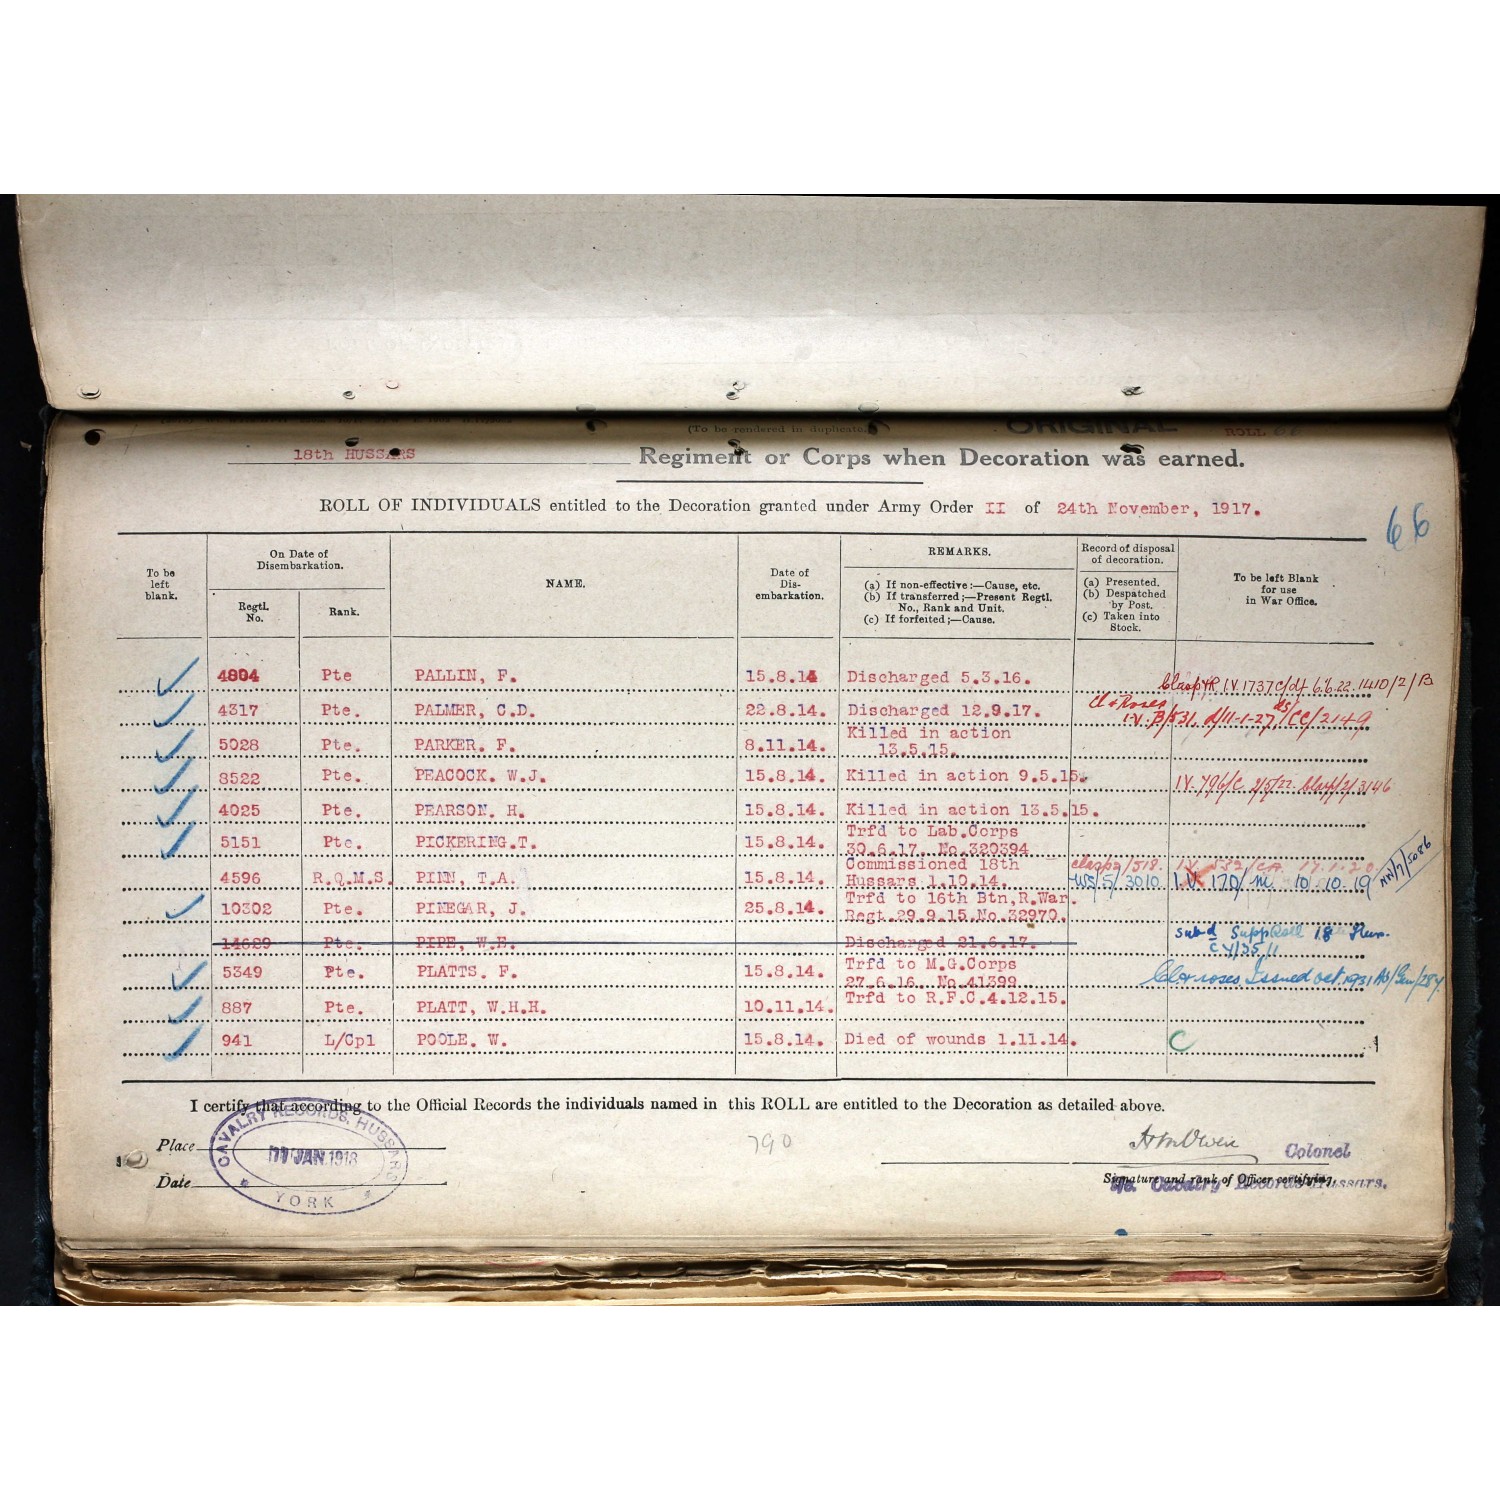 (To be rendered in duplicate.)
ORIGINAL
ROLL 66
18th HUSSARS Regiment or Corps when Decoration was earned.
ROLL OF INDIVIDUALS entitled to the Decoration granted under Army Order II of 24th November, 1917.
66
To be left blank.
On Date of Disembarkation.
Regtl. No.
Rank.
NAME.
Date of Dis-embarkation.
REMARKS.
(a) If non-effective:—Cause, etc.
(b) If transferred;—Present Regtl. No., Rank and Unit.
(c) If forfeited;—Cause.
Record of disposal of decoration.
(a) Presented.
(b) Despatched by Post.
(c) Taken into Stock.
To be left Blank for use in War Office.
4804 Pte PALLIN, F. 15.8.14 Discharged 5.3.16. Clasp I.V. 1737 6.6.22. 1410/2/B
4317 Pte. PALMER, C.D. 22.8.14. Discharged 12.9.17. Cl & Roses I.V. B/531 d/11-1-27 /CC/2149
5028 Pte. PARKER. F. 8.11.14. Killed in action 13.5.15.
8522 Pte. PEACOCK. W.J. 15.8.14. Killed in action 9.5.15. I.V. 796/C 2/5/22. Clasp/2/3146
4025 Pte. PEARSON. H. 15.8.14. Killed in action 13.5.15.
5151 Pte. PICKERING.T. 15.8.14. Trfd to Lab.Corps 30.6.17. No.320394
4596 R.Q.M.S. PINN, T.A. 15.8.14. Commissioned 18th Hussars 1.10.14. Clasp 2/518. I.V. 582/CA. 17.1.20 WS/5/3010 I.V. 170/M. 10.10.19 NW/7/5086
10302 Pte. PINEGAR, J. 25.8.14. Trfd to 16th Btn.R.War. Regt.29.9.15.No.32970.
14629 Pte. PIPE, W.E. Discharged 21.6.17. Supp Roll 18 Hus.
5349 Pte. PLATTS. F. 15.8.14. Trfd to M.G.Corps 27.6.16. No.41399 Cl & roses Issued Oct. 1931
887 Pte. PLATT, W.H.H. 10.11.14. Trfd to R.F.C.4.12.15.
941 L/Cpl POOLE. W. 15.8.14. Died of wounds 1.11.14. C
I certify that according to the Official Records the individuals named in this ROLL are entitled to the Decoration as detailed above.
Place
Date
CAVALRY RECORDS, HUSSARS
JAN. 1918
YORK
790
Colonel
Signature and rank of Officer certifying.
Cavalry Records Hussars.